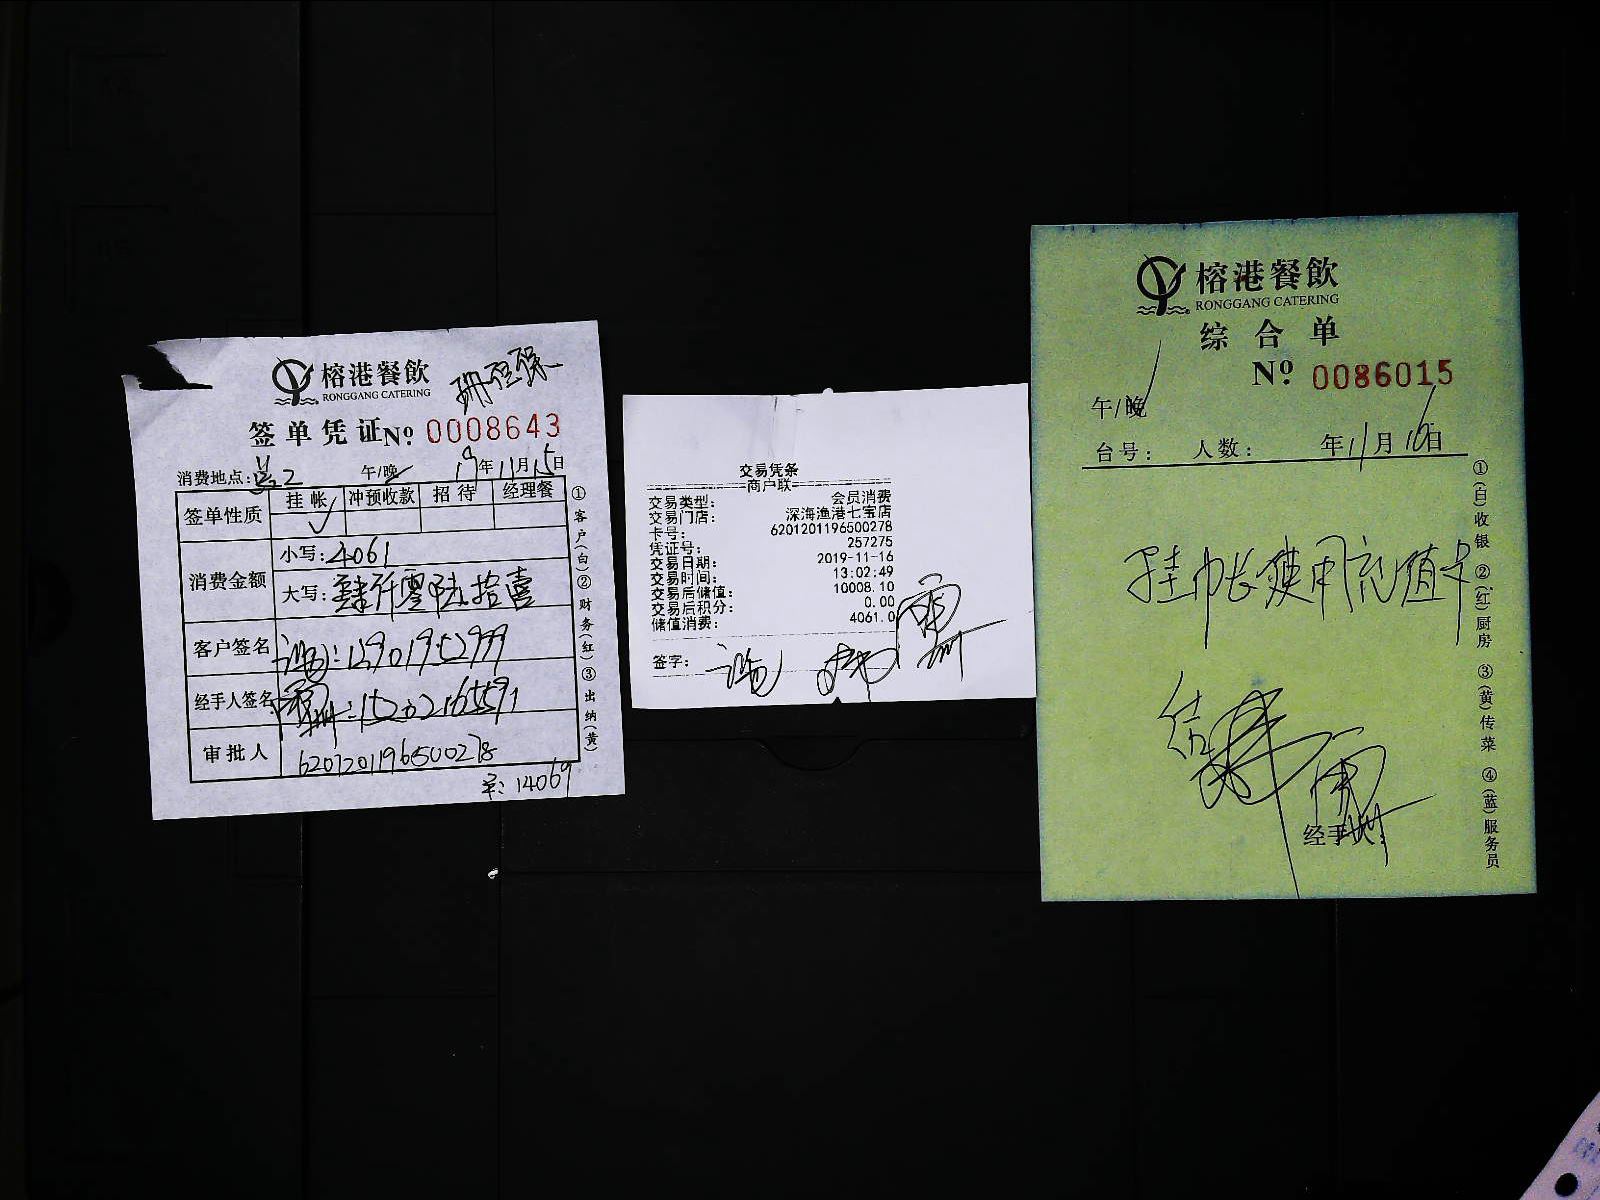 榕港餐飲
RONGGANG CATERING
珊担保
签单凭证 Nº 0008643
消费地点: 2 午/晚 19年11月15日
签单性质 挂帐 冲预收款 招待 经理餐
✓
消费金额 小写: 4061
大写: 肆仟零陆拾壹
客户签名
经手人签名
审批人 6201201196500278
14069
①客户(白)②财务(红)③出纳(黄)
交易凭条
商户联
交易类型: 会员消费
交易门店: 深海渔港七宝店
卡号: 6201201196500278
凭证号: 257275
交易日期: 2019-11-16
交易时间: 13:02:49
交易后储值: 10008.10
交易后积分: 0.00
储值消费: 4061.0
签字:
榕港餐飲
RONGGANG CATERING
综合单
Nº 0086015
午/晚
台号: 人数: 年11月16日
挂帐使用充值卡
结
经手人:
①(白)收银 ②(红)厨房 ③(黄)传菜 ④(蓝)服务员